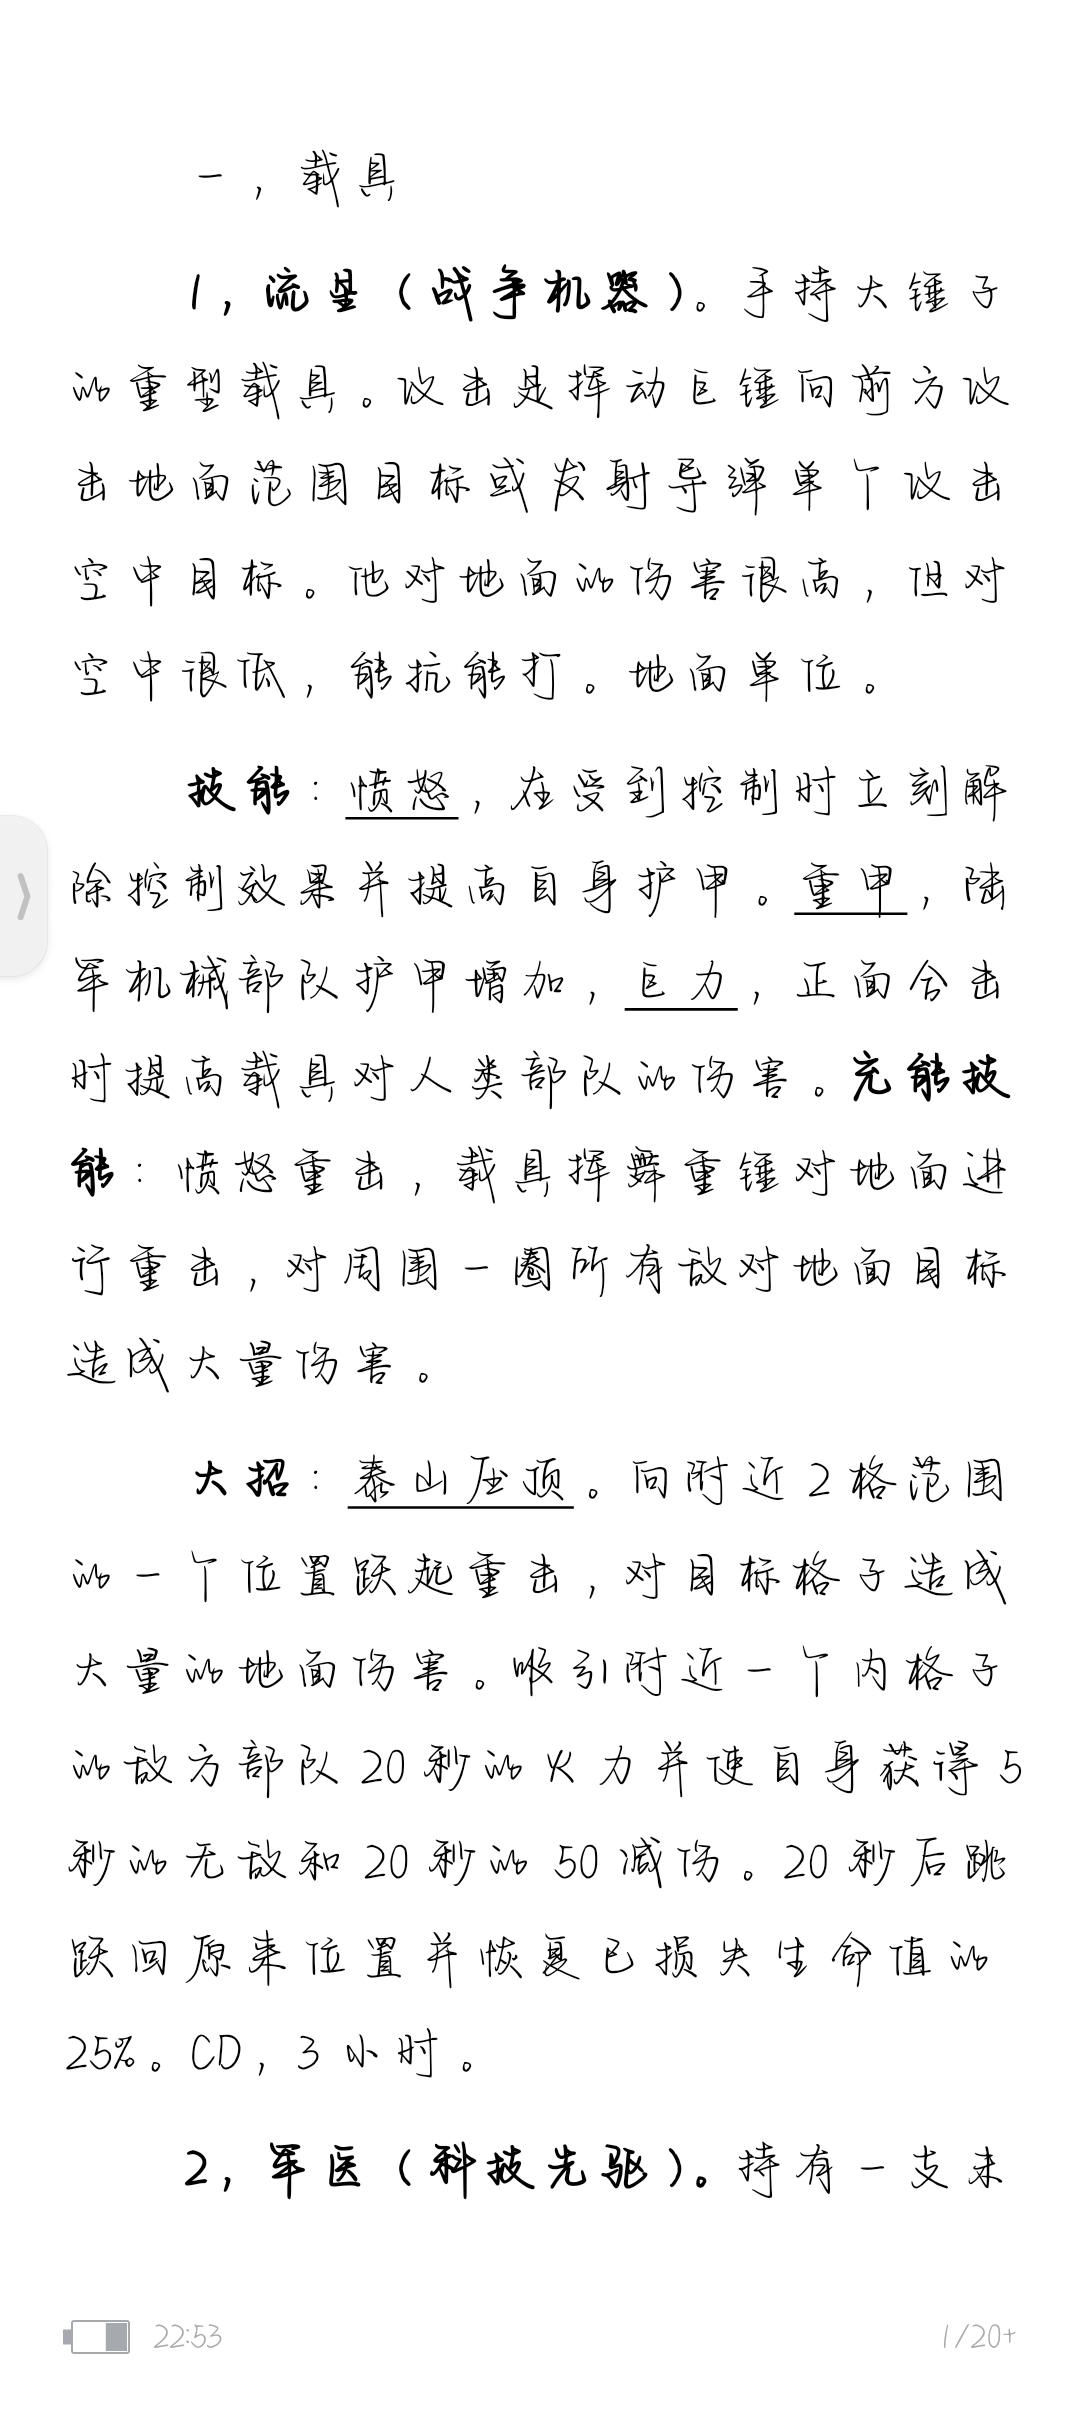 一，载具
1，流星（战争机器）。手持大锤子
的重型载具。攻击是挥动巨锤向前方攻
击地面范围目标或发射导弹单个攻击
空中目标。他对地面的伤害很高，但对
空中很低，能抗能打。地面单位。
技能：愤怒，在受到控制时立刻解
除控制效果并提高自身护甲。重甲，陆
军机械部队护甲增加，巨力，正面合击
时提高载具对人类部队的伤害。充能技
能：愤怒重击，载具挥舞重锤对地面进
行重击，对周围一圈所有敌对地面目标
造成大量伤害。
大招：泰山压顶。向附近2格范围
的一个位置跃起重击，对目标格子造成
大量的地面伤害。吸引附近一个内格子
的敌方部队20秒的火力并使自身获得5
秒的无敌和20秒的50减伤。20秒后跳
跃回原来位置并恢复已损失生命值的
25%。CD，3小时。
2，军医（科技先驱）。持有一支未
22:53
1/20+